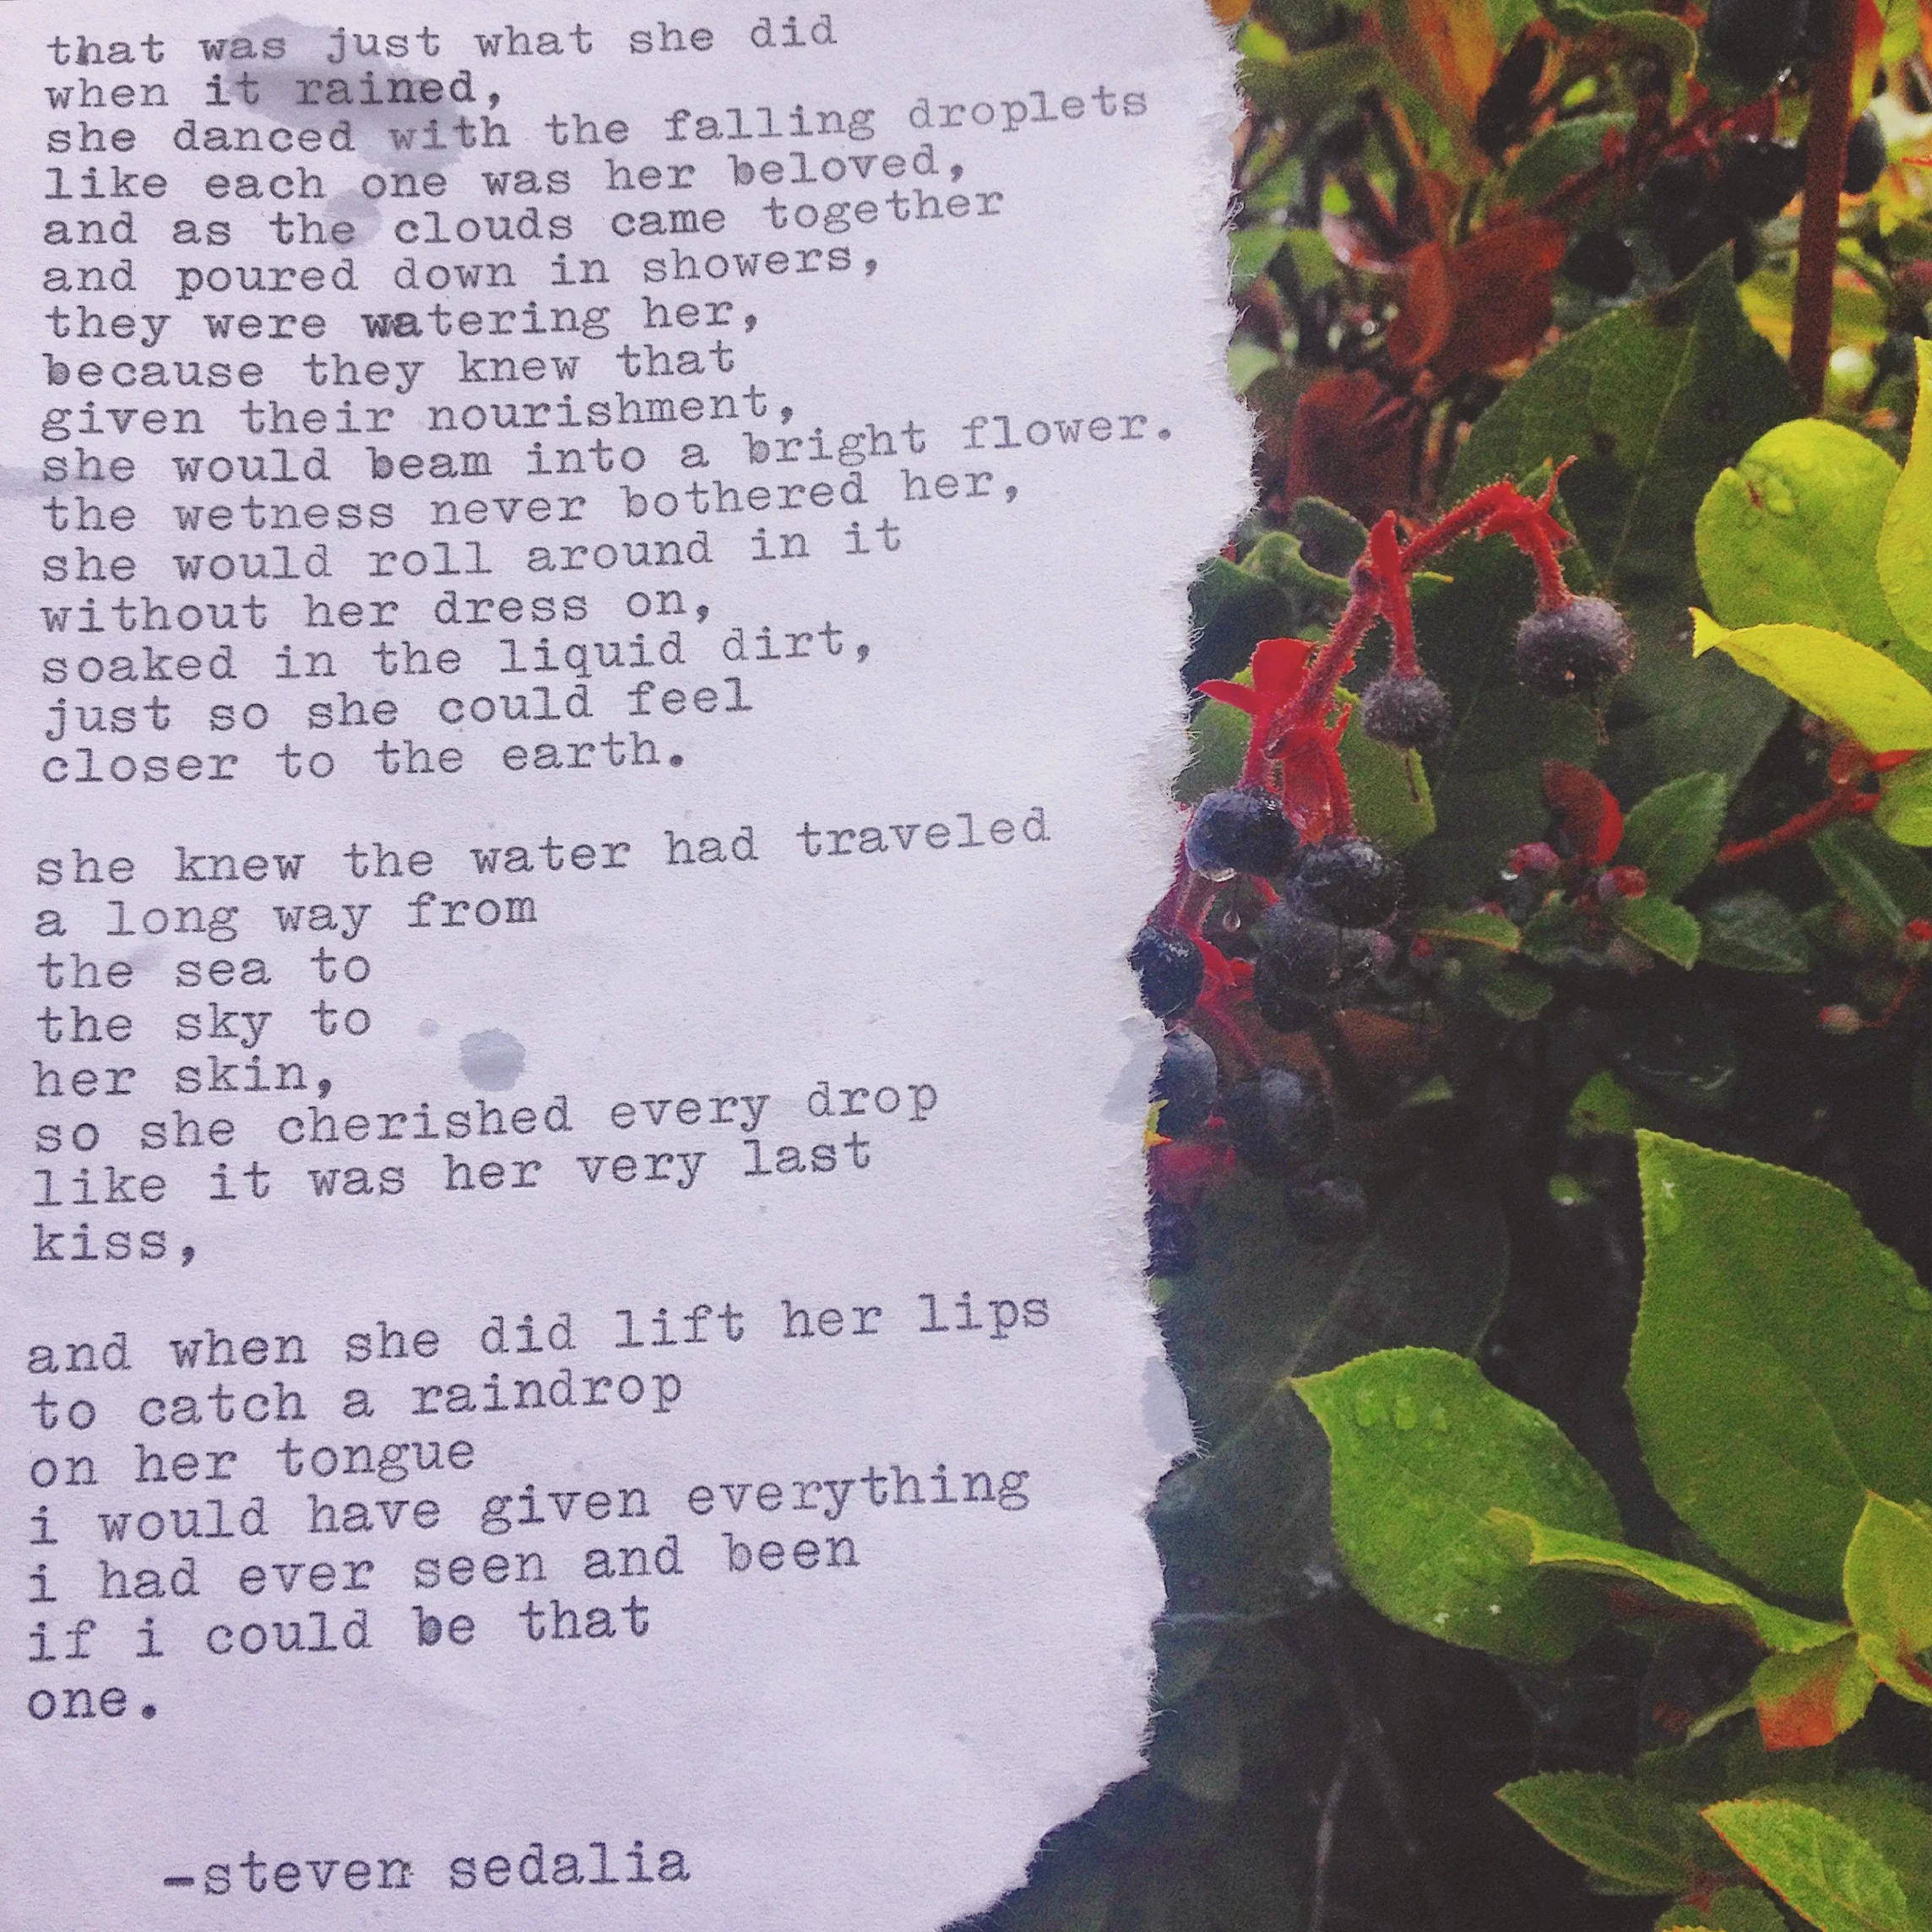 that was just what she did
when it rained,
she danced with the falling droplets
like each one was her beloved,
and as the clouds came together
and poured down in showers,
they were watering her,
because they knew that
given their nourishment,
she would beam into a bright flower.
the wetness never bothered her,
she would roll around in it
without her dress on,
soaked in the liquid dirt,
just so she could feel
closer to the earth.
she knew the water had traveled
a long way from
the sea to
the sky to
her skin,
so she cherished every drop
like it was her very last
kiss,
and when she did lift her lips
to catch a raindrop
on her tongue
i would have given everything
i had ever seen and been
if i could be that
one.
-steven sedalia